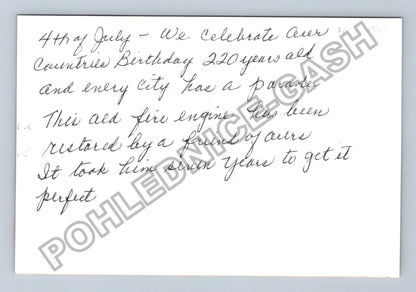 4th of July - We Celebrate Our
Countries Birthday 220 years old
and every city has a parade
This old fire engine has been
restored by a friend of ours
It took him seven years to get it
perfect
POHLEDNICE-CASH